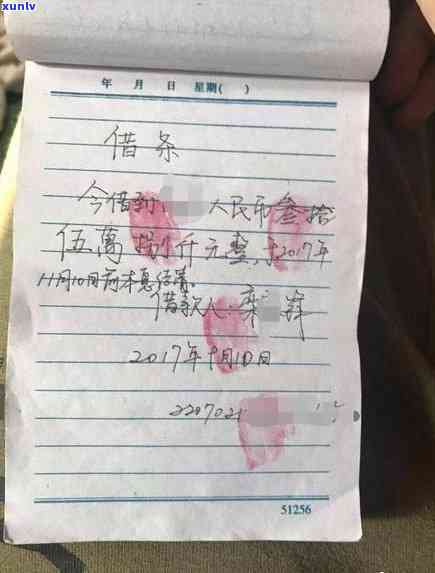 xunlv
年 月 日 星期( )
借条
今借到 人民币叁拾
伍萬捌仟元整，于2017年
11月10日前本息结清。
借款人：栾
2017年十月10日
220702
51256